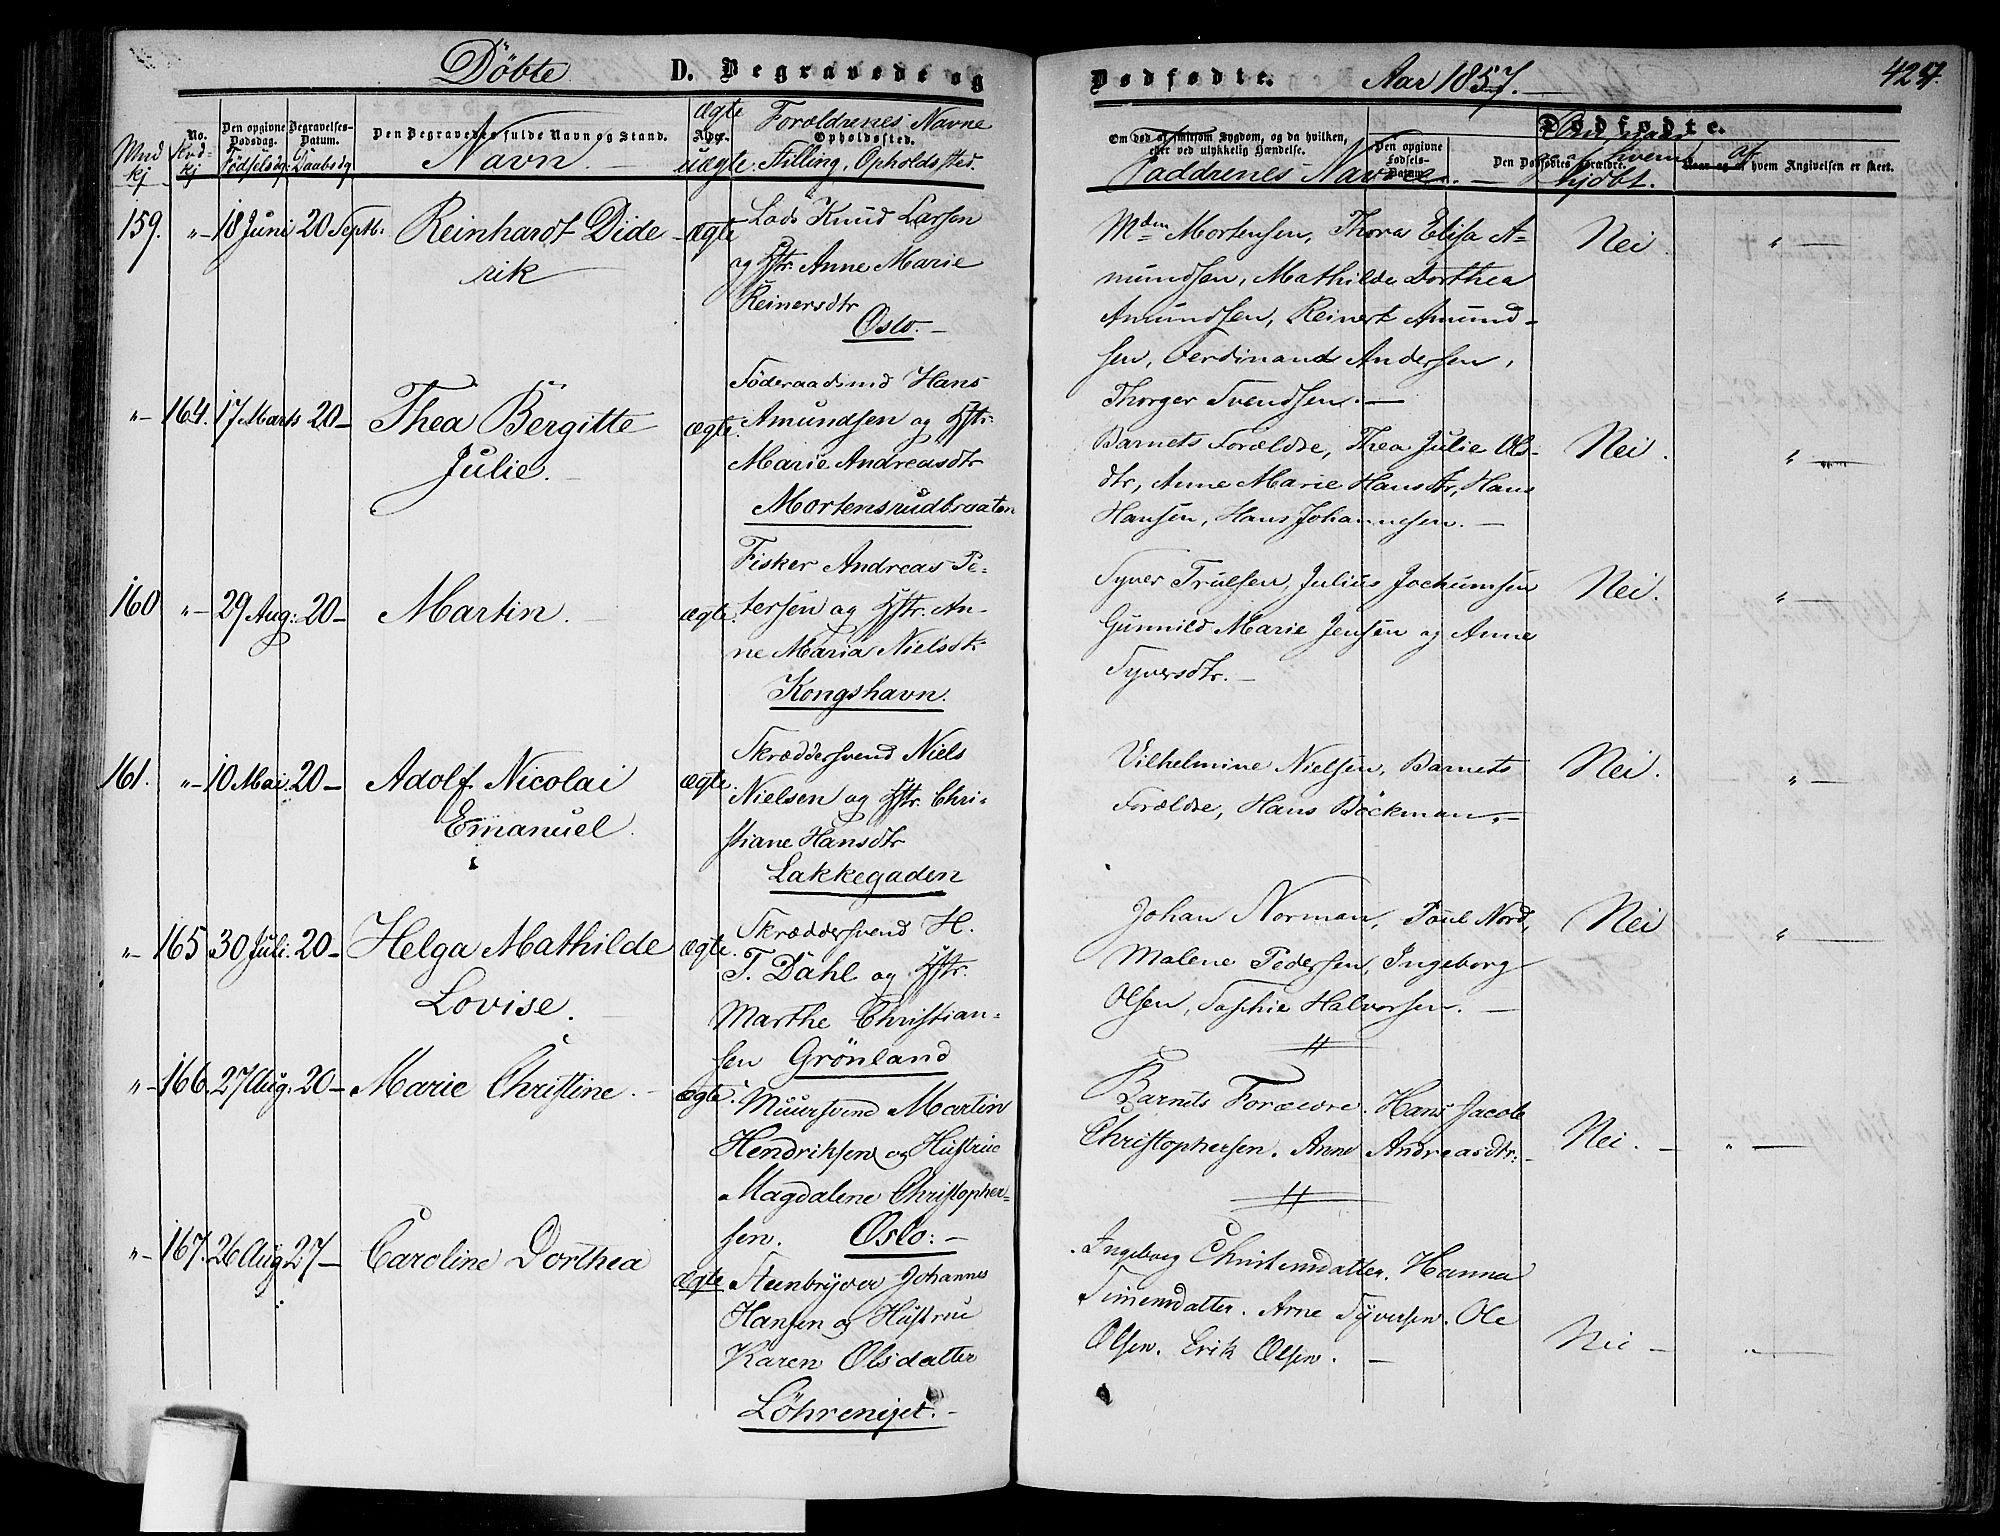 Döbte D. Begravede og
Mnd kj
No. Kvd- kj
Den opgivne Dødsdag. Fødselsdg:
Begravelses-Datum. Daabsdg
Den Begravedes fulde Navn og Stand. Navn
Alder. Ægte uægte
Forældrenes Navne
Opholdssted.
Stilling, Opholdssted.
159. "- 18 Juni 20 Septb: Reinhardt Dide- ægte Lods Knud Larsen
rik og Hstr. Anne Marie
Reinersdtr
Oslo.-
"- 164. 17 Marts 20- Thea Bergitte ægte. Föderaadsmd Hans
Julie.- Amundsen og Hstr.
Marie Andreasdtr
Mortensrudbraaten
160 "- 29 Aug: 20- Martin. ægte. Fisker Andreas Pe-
tersen og Hstr. An-
ne Maria Nielsdtr
Kongshavn.
161. "- 10 Mai. 20- Adolf Nicolai ægte. Skræddersvend Niels
Emanuel. Nielsen og Hstr. Chri-
stiane Hansdtr
Lakkegaden
"- 165 30 Juli. 20- Helga Mathilde ægte. Skræddersvend H.
Lovise.- T. Dahl og Hstr.
Marthe Christian-
sen Grönland
"- 166. 27 Aug. 20- Marie Christine.- ægte. Muursvend Martin
Hendriksen og Hustrue
Magdalene Christopher-
sen. Oslo:-
"- 167. 26 Aug 27- Caroline Dorthea ægte Steenbryder Johannes
Hansen og Hustrue
Karen Olsdatter
Löhreniget.-
Dødfødte. Aar 1857.- 424.
Om død af smitsom Sygdom, og da hvilken,
eller ved ulykkelig Hændelse.
Faddrenes Navne.-
Den opgivne
Fødsels-
Datum.
Dødfødte.
Den Dødfødtes Forældre.
Naar og af hvem Angivelsen er skeet.
Mdm Mortensen, Thora Elisa A- Nei. "-
mundsen, Mathilde Dorthea
Amundsen, Reinert Amund-
sen, Ferdinand Andersen,
Thorger Svendsen.-
Barnets Forældre, Thea Julie Ols- Nei. "-
dtr, Anne Marie Hansdtr, Hans
Hansen, Hans Johannesen.-
Syver Truelsen, Julius Jochumsen Nei. "-
Gunnild Marie Jensen og Anne
Syversdtr.-
Vilhelmine Nielsen, Barnets Nei. "-
Forældre, Hans Böckman.-
Johan Norman, Poul Nord, Nei "-
Malene Pedersen, Ingeborg
Olsen, Sophie Halvorsen.-
Barnets Forældre. Hans Jacob
Christophersen. Anne Andreasdtr:- Nei.- "-
Ingeborg Christensdatter. Hanna
Simensdatter. Arne Syversen. Ole
Olsen. Erik Olsen.- Nei- "-